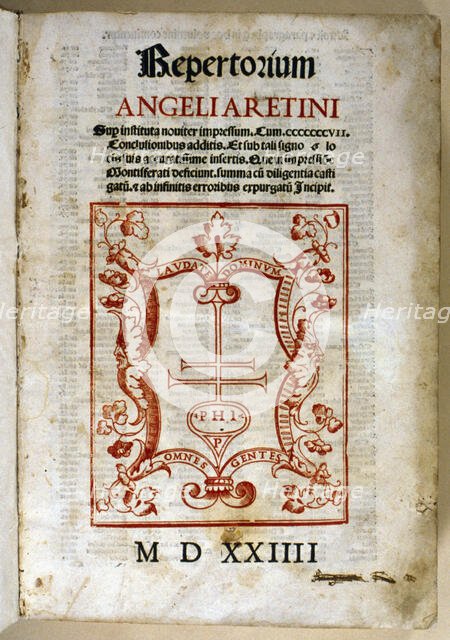 Repertorium
ANGELI ARETINI
Sup instituta noviter impressum. Cum. CCCCCCCVII.
Conclusionibus additis. Et sub tali signo lo
cis suis accuratissime insertis. Que in impressis
Montisferati deficiunt. summa cũ diligentia casti
gatũ. & ab infinitis erroribus expurgatũ Incipit.
LAUDATE DOMINVM
PHI
P
OMNES GENTES
M D XXIIII
Heritage
Heritage
Heritage
Heritage
Heritage
Heritage